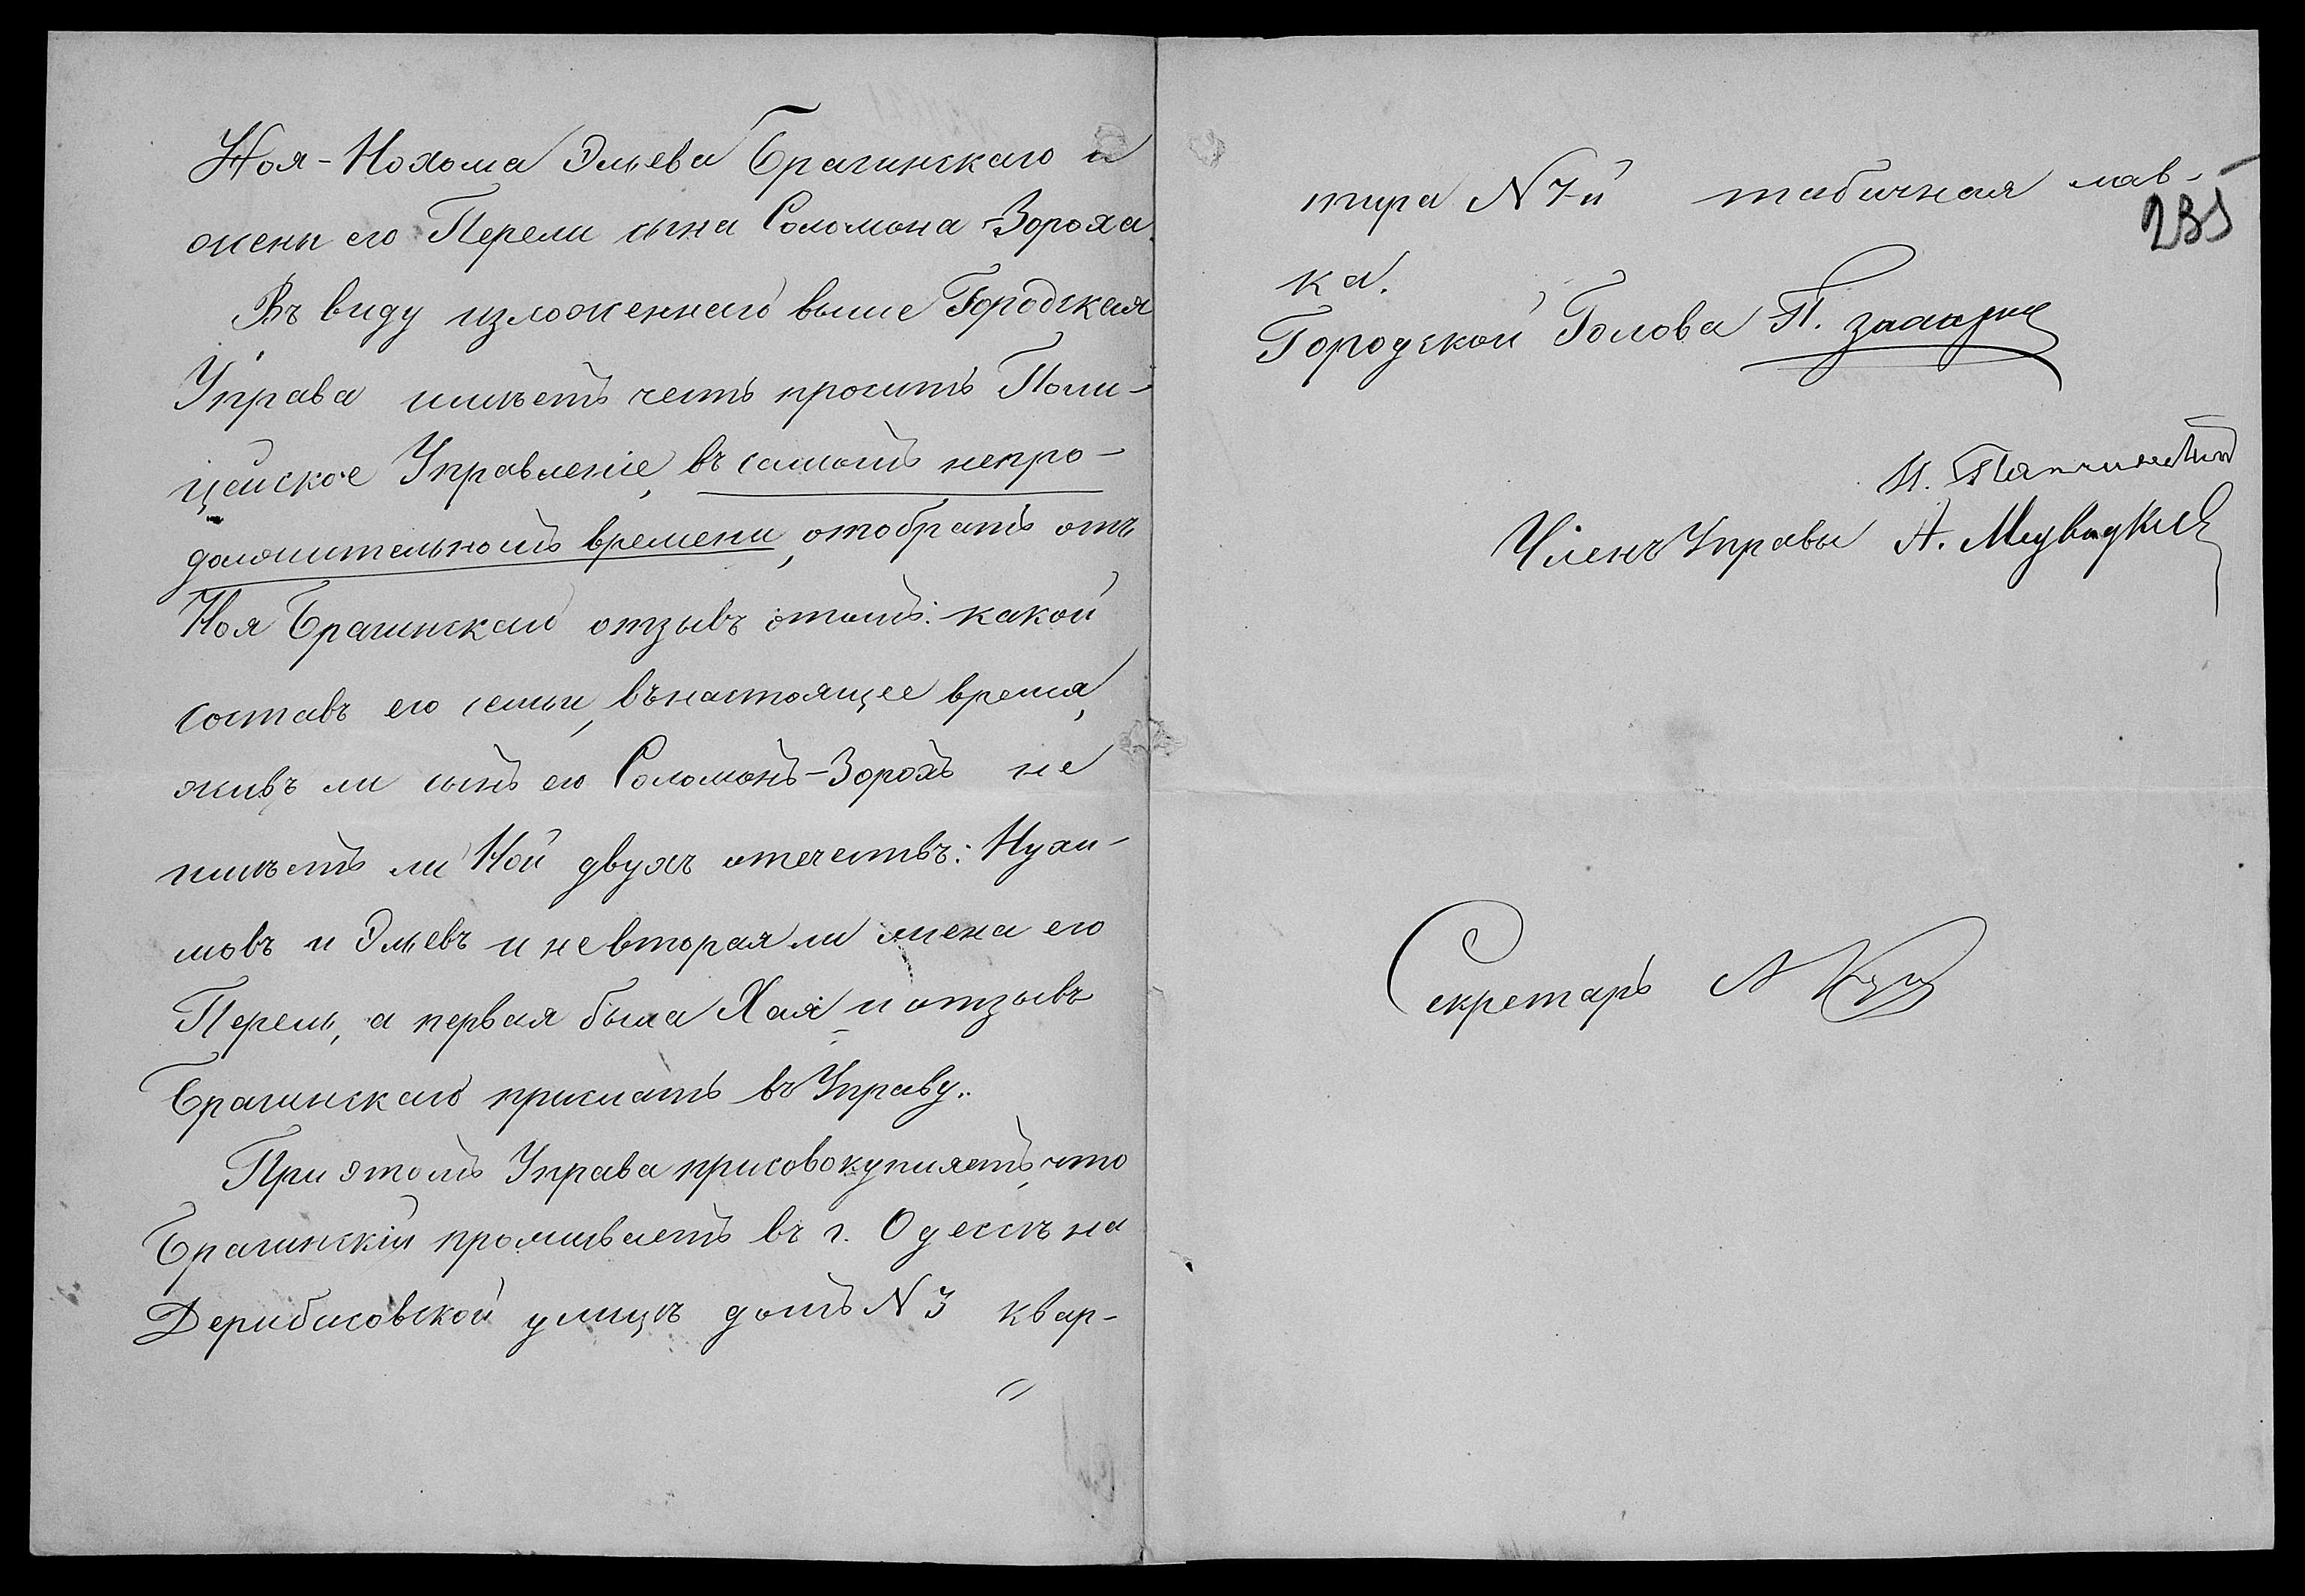 Ноя-Нохома Эльева Брагинскаго и
жены его Перели сына Соломона-Зороха.
Въ виду изложеннаго выше Городская
Управа имѣетъ честь просить Поли-
цейское Управленіе, въ самомъ непро-
должительномъ времени, отобрать отъ
Ноя Брагинскаго отзывъ о томъ: какой
составъ его семьи, въ настоящее время,
живъ ли сынъ его Соломонъ-Зорохъ не
имѣетъ ли Ной двухъ отечествъ: Нухи-
мовъ и Эльевъ и не вторая ли жена его
Перель, а первая была Хая и отзывъ
Брагинскаго прислать въ Управу.
При этомъ Управа присовокупляетъ, что
Брагинскій проживаетъ въ г. Одессѣ на
Дерибасовской улицѣ домъ N 3 квар-
тира N 7-й табачная лав-
235
ка.
Городской Голова П.
Н.
Членъ Управы А.
Секретарь